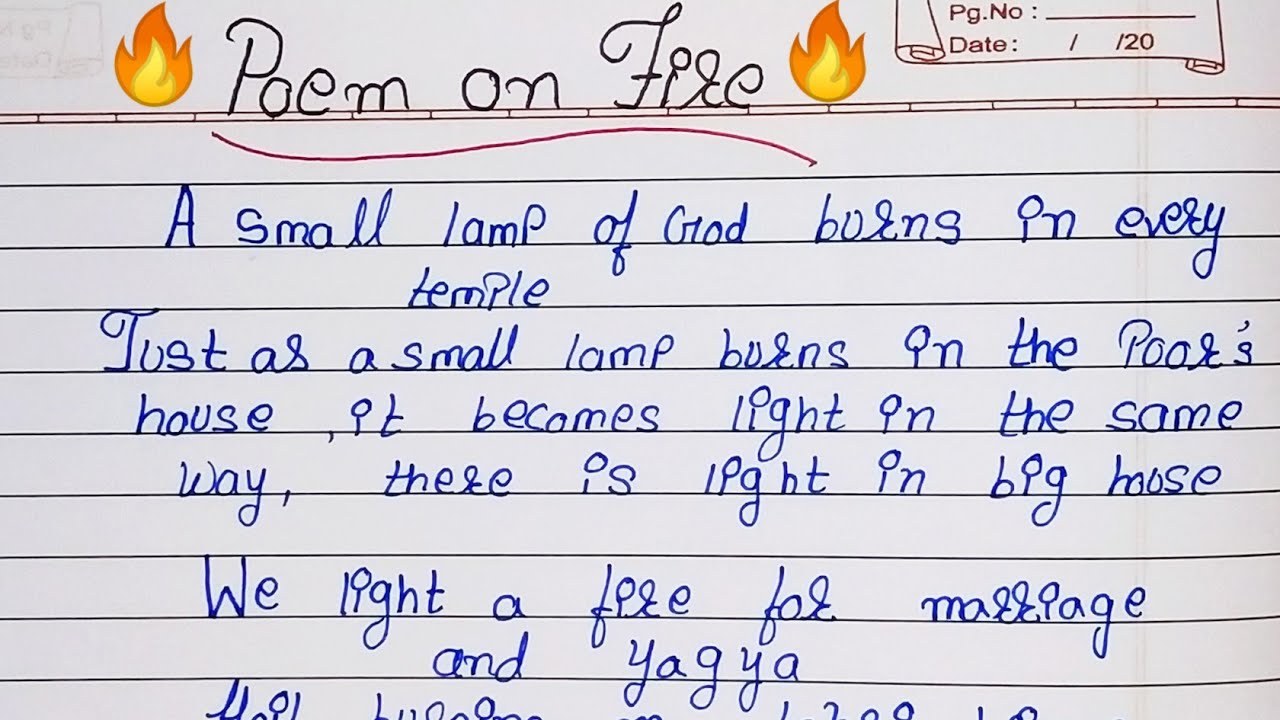 Pg.No :
Date: / /20
🔥 Poem on Fire 🔥
A small lamp of God burns in every
temple
Just as a small lamp burns in the Poor's
house, it becomes light in the same
way, there is light in big house
We light a fire for marriage
and yagya
burning